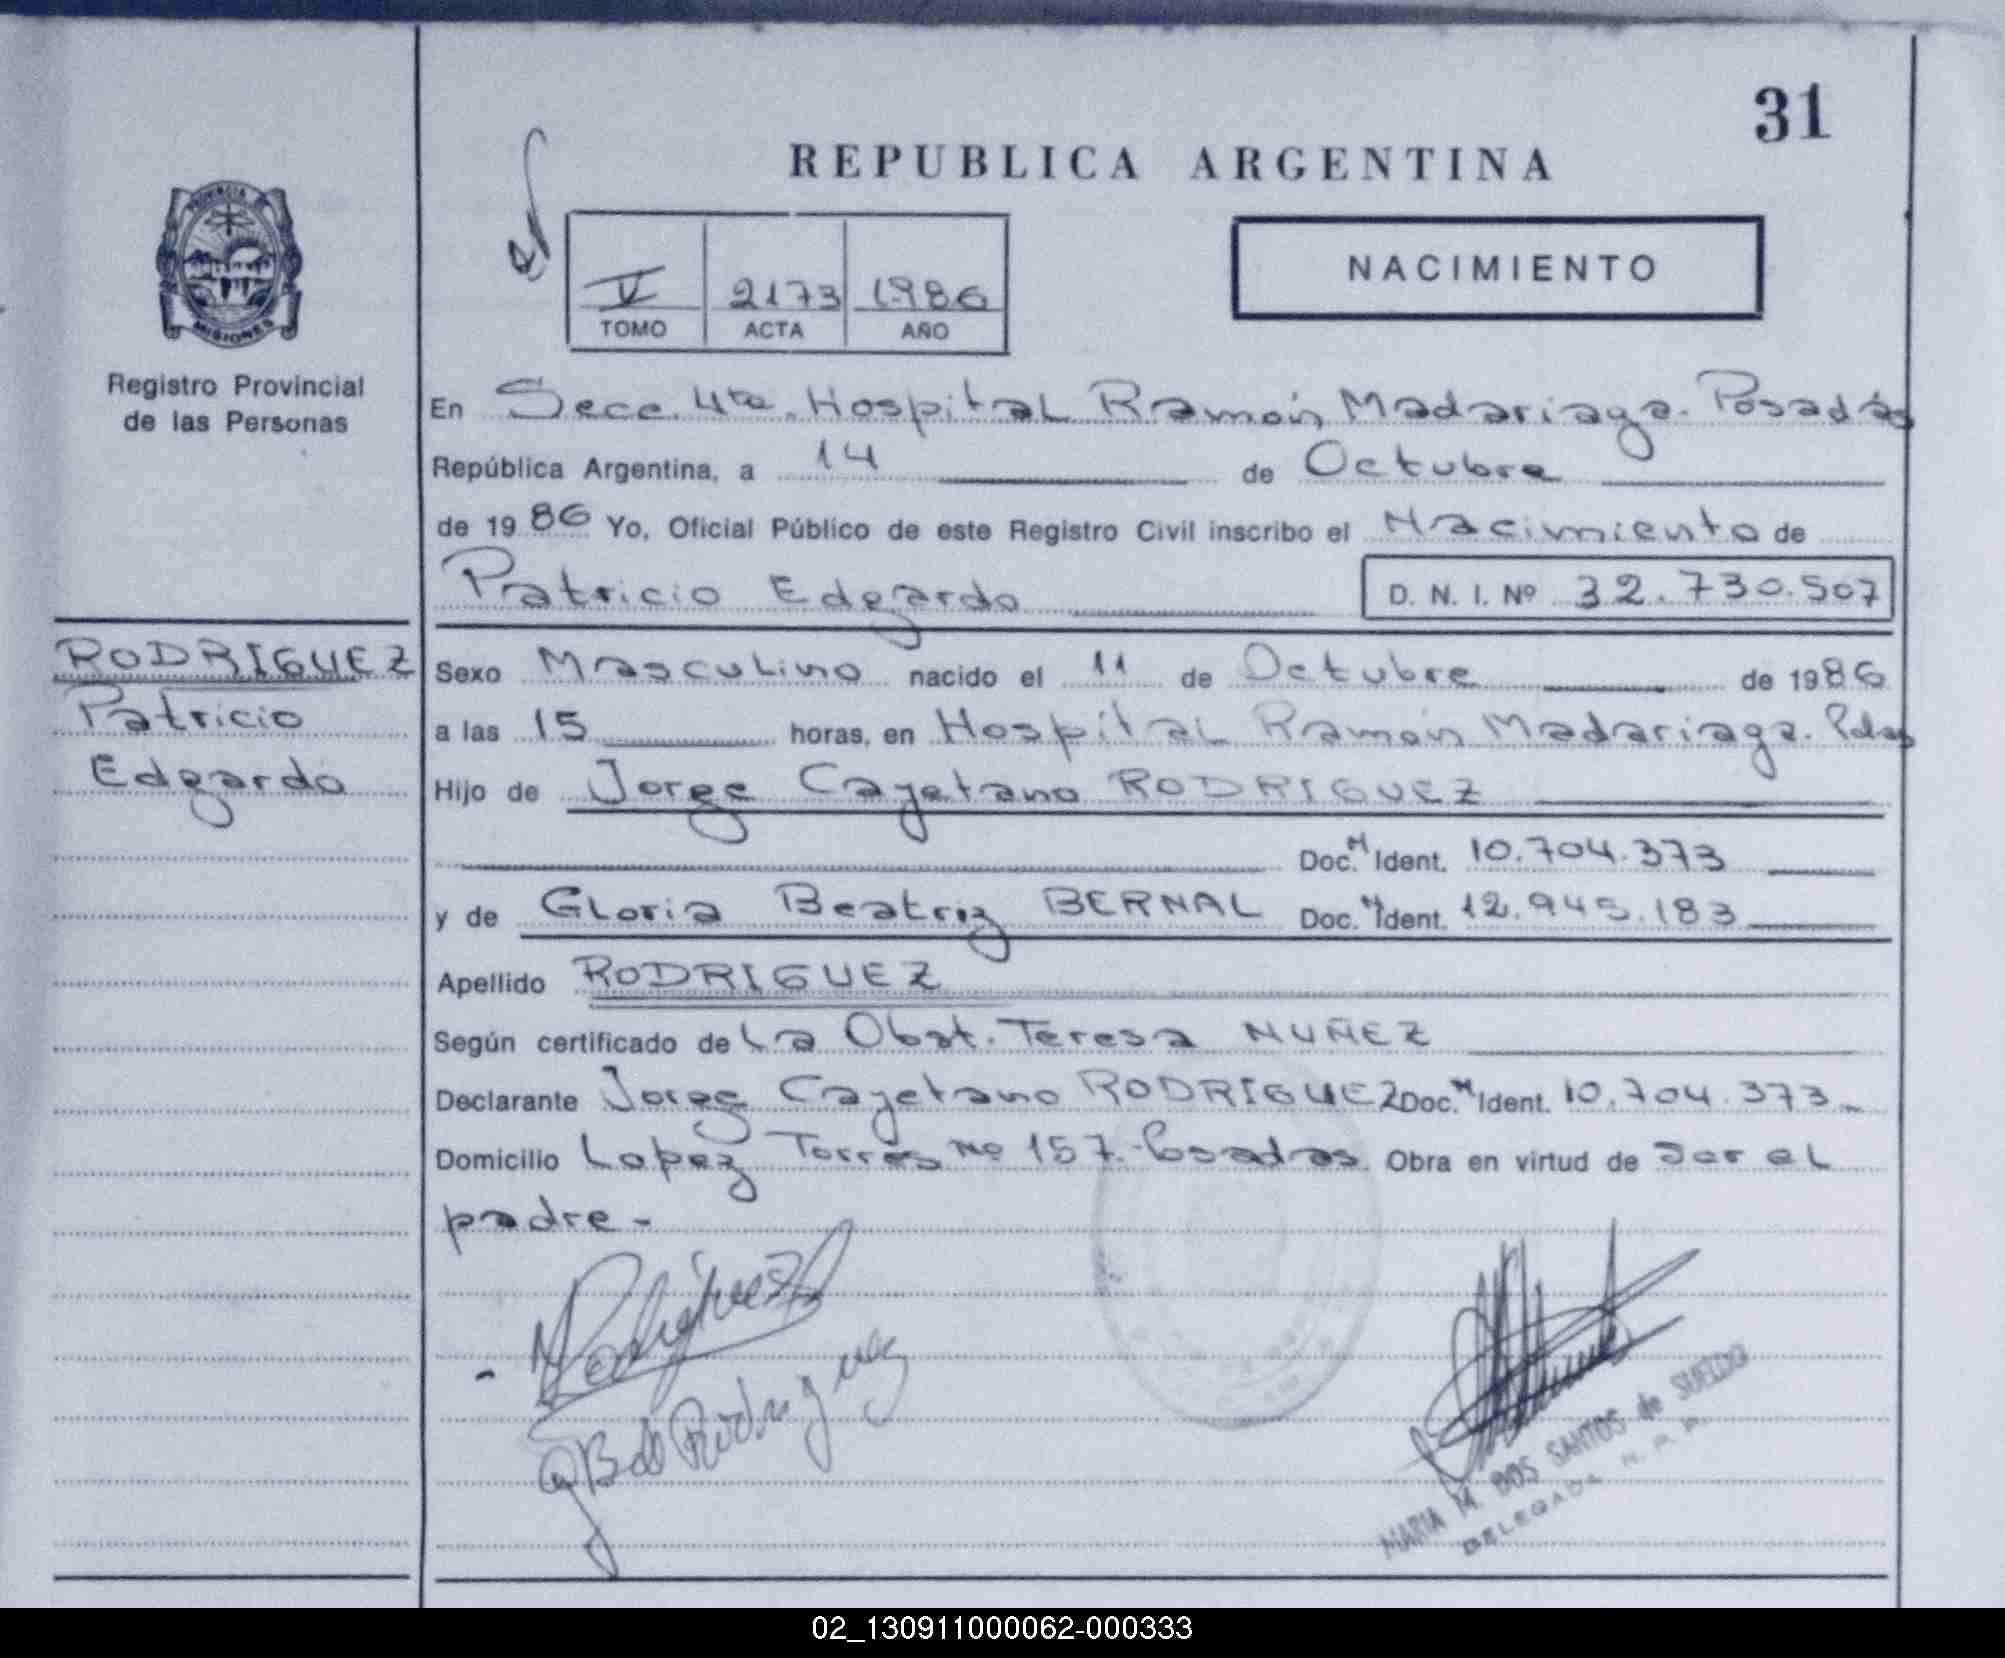 31
REPUBLICA ARGENTINA
PROVINCIA DE
MISIONES
Registro Provincial
de las Personas
V 2173 1986
TOMO ACTA AÑO
NACIMIENTO
En Secc. 4ta. Hospital Ramón Madariaga. Posadas
República Argentina, a 14 de Octubre
de 1986 Yo, Oficial Público de este Registro Civil inscribo el Nacimiento de
Patricio Edgardo D. N. I. Nº 32.730.507
RODRIGUEZ
Patricio
Edgardo
Sexo Masculino nacido el 11 de Octubre de 1986
a las 15 horas, en Hospital Ramón Madariaga.
Hijo de Jorge Cayetano RODRIGUEZ
Doc. Ident. 10.704.373
y de Gloria Beatriz BERNAL Doc. Ident. 12.945.183
Apellido RODRIGUEZ
Según certificado de La Obst. Teresa NUÑEZ
Declarante Jorge Cayetano RODRIGUEZ Doc. Ident. 10.704.373
Domicilio Lopez Torres Nº 157. Posadas Obra en virtud de ser el
padre -
Rodriguez
GB de Rodriguez
MARIA M. DOS SANTOS de SUELDO
DELEGADA
02_130911000062-000333